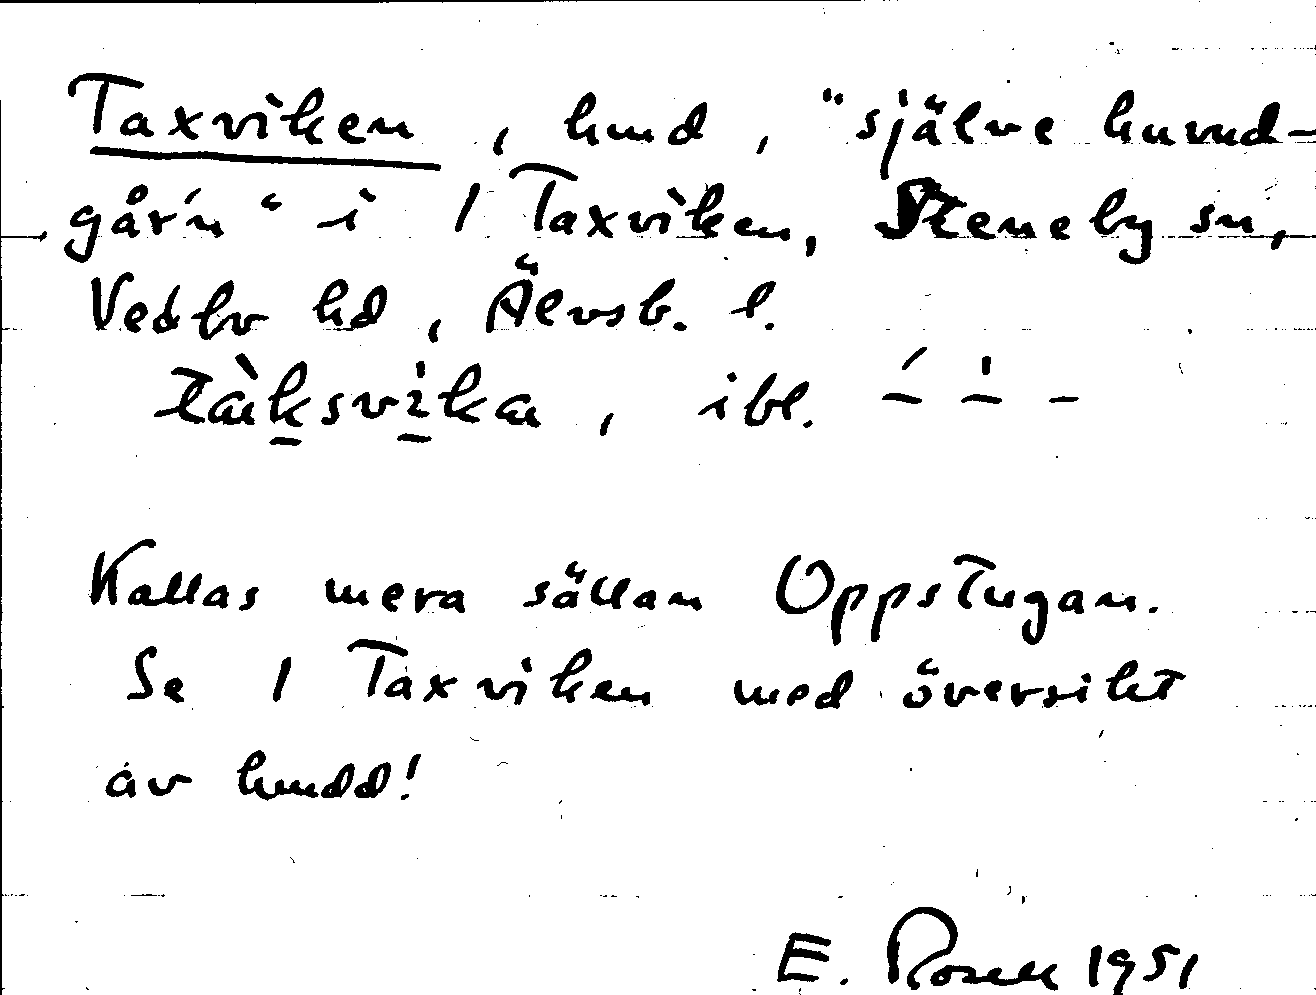 Taxviken, hmd, "själve huvud-
går'n" i 1 Taxviken, Steneby sn,
Vedbo hd, Älvsb. l.
ibl. ´– '– –
Kallas mera sällan Oppstugan.
Se 1 Taxviken med översikt
av hmdd!
E. Rosell 1951